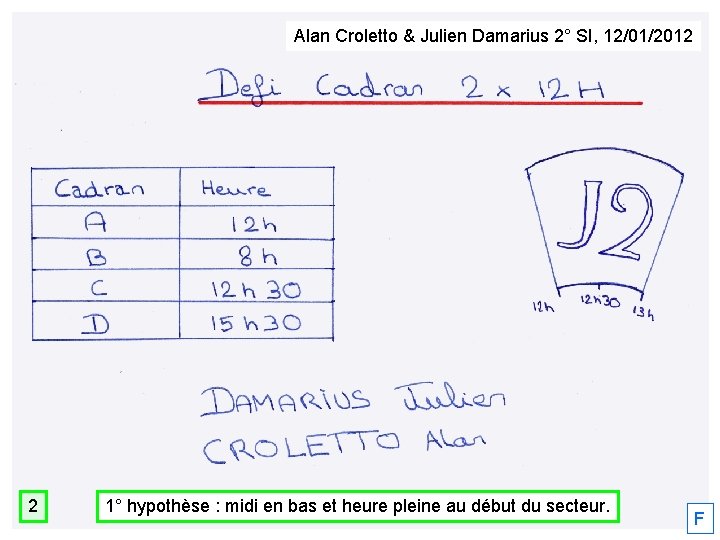 Alan Croletto & Julien Damarius 2° SI, 12/01/2012
Defi Cadran 2 x 12H
Cadran Heure
A 12h
B 8h
C 12h30
D 15h30
J2
12h 12h30 13h
DAMARIUS Julien
CROLETTO Alan
2 1° hypothèse : midi en bas et heure pleine au début du secteur.
F